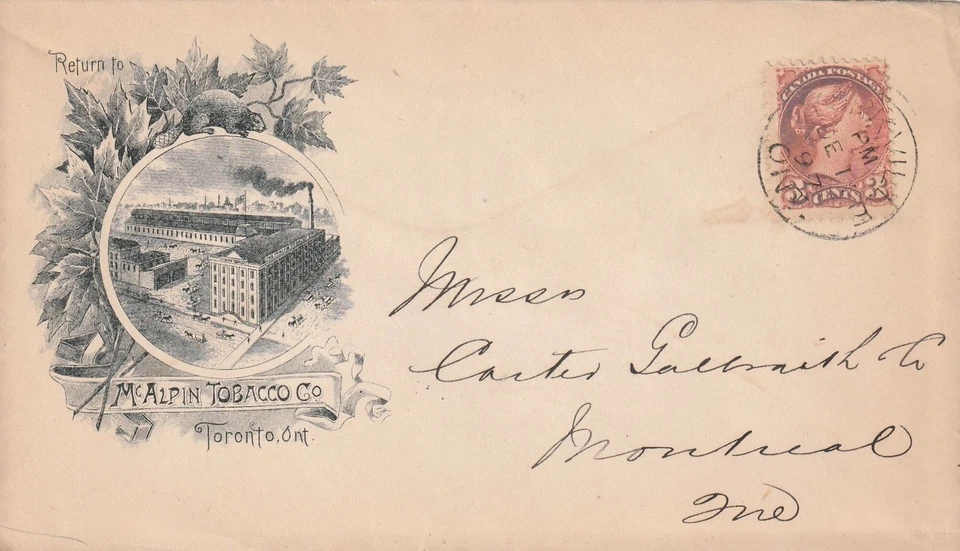 Return to
McALPIN TOBACCO CO
Toronto, Ont.
CANADA POSTAGE
3 CENTS 3
PM
DE 1
97
ONT.
Messrs
Carter Galbraith Co
Montreal
Que